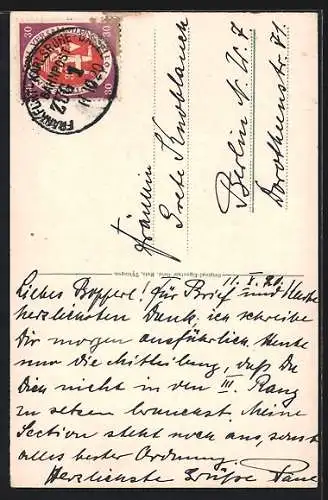 30 30
30
FRANKFURT - KARLSRUHE
BAHNPOST
10 20
Fräulein
Grete Knoblauch
Berlin N.W. 7
Dorotheenstr. 71
Original-Eigentum Phot.
11. X. 20.
Liebes Bopperl! Für Brief und Karte
herzlichsten Dank, ich schreibe
Dir morgen ausführlich. Heute
nur die Mitteilung, daß Du
Dich nicht in den III. Rang
zu setzen brauchst. Meine
Section steht noch aus, sonst
alles bester Ordnung.
Herzlichste Grüße Paul